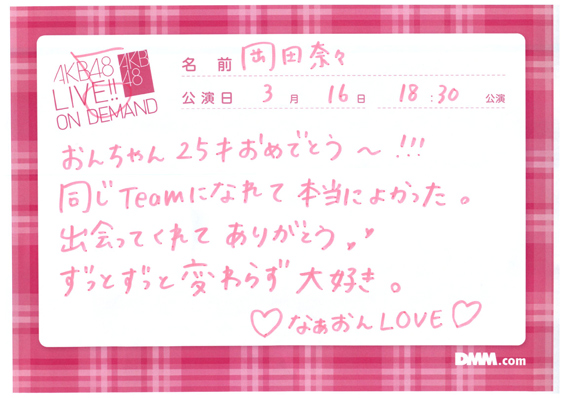 AKB48
LIVE!!
ON DEMAND
AKB
48
名 前 岡田奈々
公演日 3 月 16 日 18:30 公演
おんちゃん 25才おめでとう〜!!!
同じTeamになれて本当によかった。
出会ってくれてありがとう
ずっとずっと変わらず大好き。
♡なぁおんLOVE♡
DMM.com